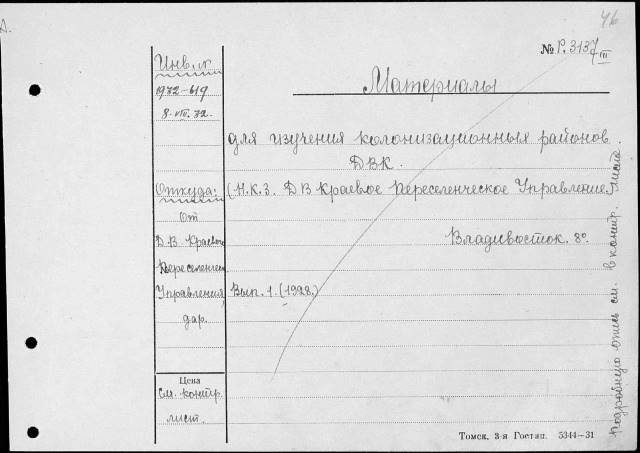 46
№ Р.3137/III
Инв. №
1932-619
8. VIII. 32.
Материалы
для изучения колонизационных районов
ДВК.
Откуда:
(Н.К.З. ДВ Краевое Переселенческое Управление)
От
Д.В. Краевого
Переселенческ
Управления,
дар.
Владивосток. 8º.
Вып. 1. (1928.)
Цена
см. контр.
лист.
Подробную опись см. в контр. листе.
Томск, 3-я Гостип. 5344—31